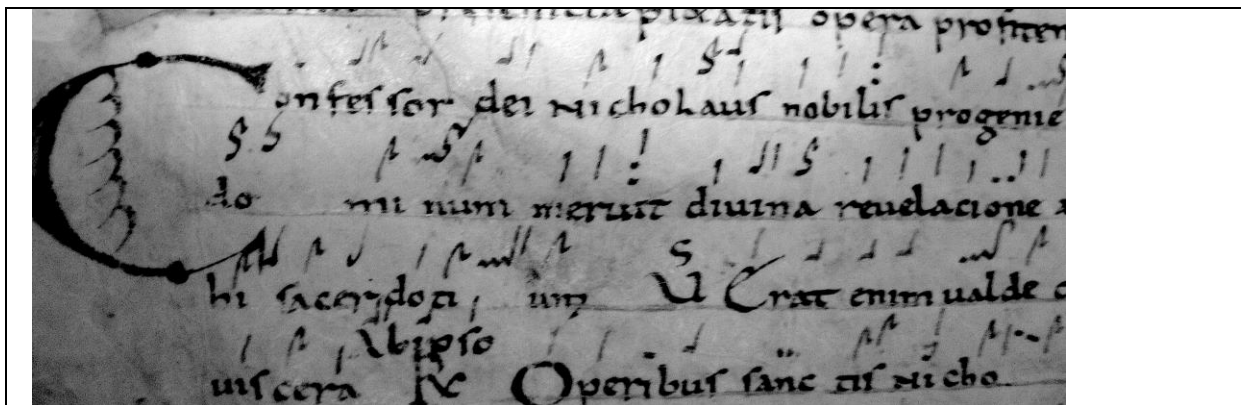 opera profiten
Confessor dei Nicholaus nobilis progenie
do mi num meruit diuina reuelacione a
hi sacerdoti um V Erat enim ualde c
Abipso
uiscera R Operibus sanc tis Nicho